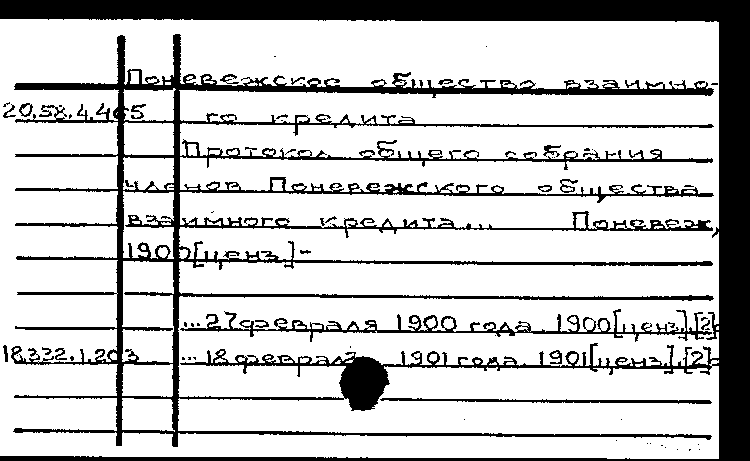 Поневежское общество взаимно-
20.58.4.465 го кредита
Протокол общего собрания
членов Поневежского общества
взаимного кредита... Поневеж,
1900[ценз.]-
...27 февраля 1900 года. 1900[ценз.].[2]с
18.332.1.203 ...18 февраля 1901 года. 1901[ценз.].[2]с